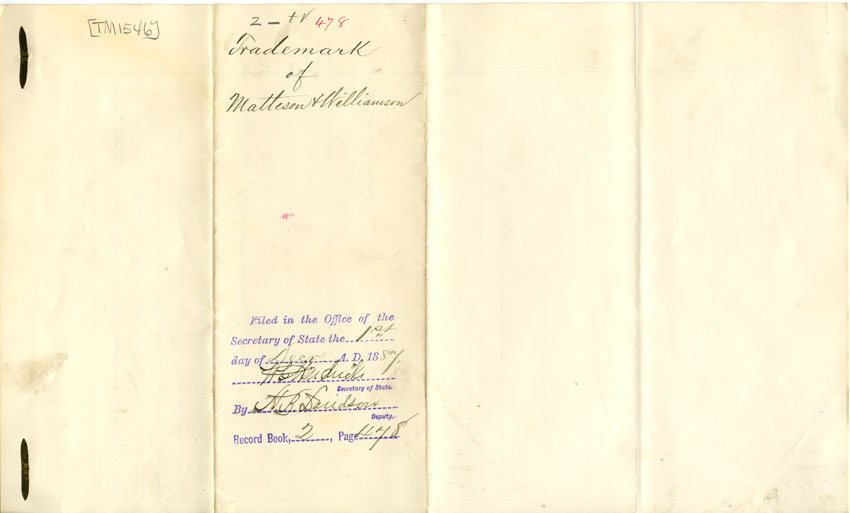 [TM1546]
2 – 478
Trademark
of
Matteson & Williamson
Filed in the Office of the
Secretary of State the 1st
day of Decr A. D. 1887.
W C Hendricks
Secretary of State.
By H B Davidson
Deputy.
Record Book, 2, Page 478